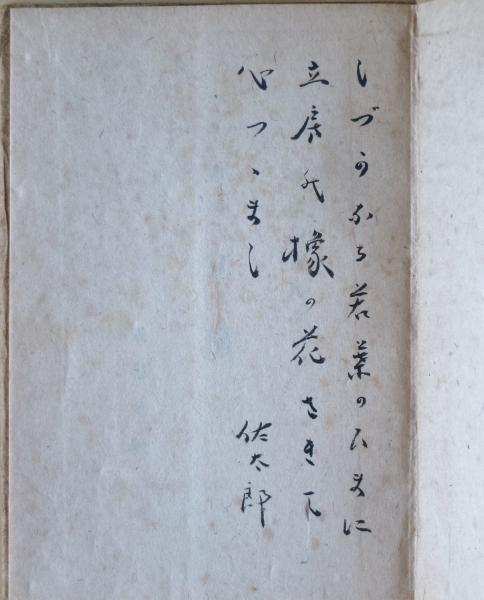 しづかなる若葉のひまに
立房の橡の花さきて
心つゝまし
佐太郎